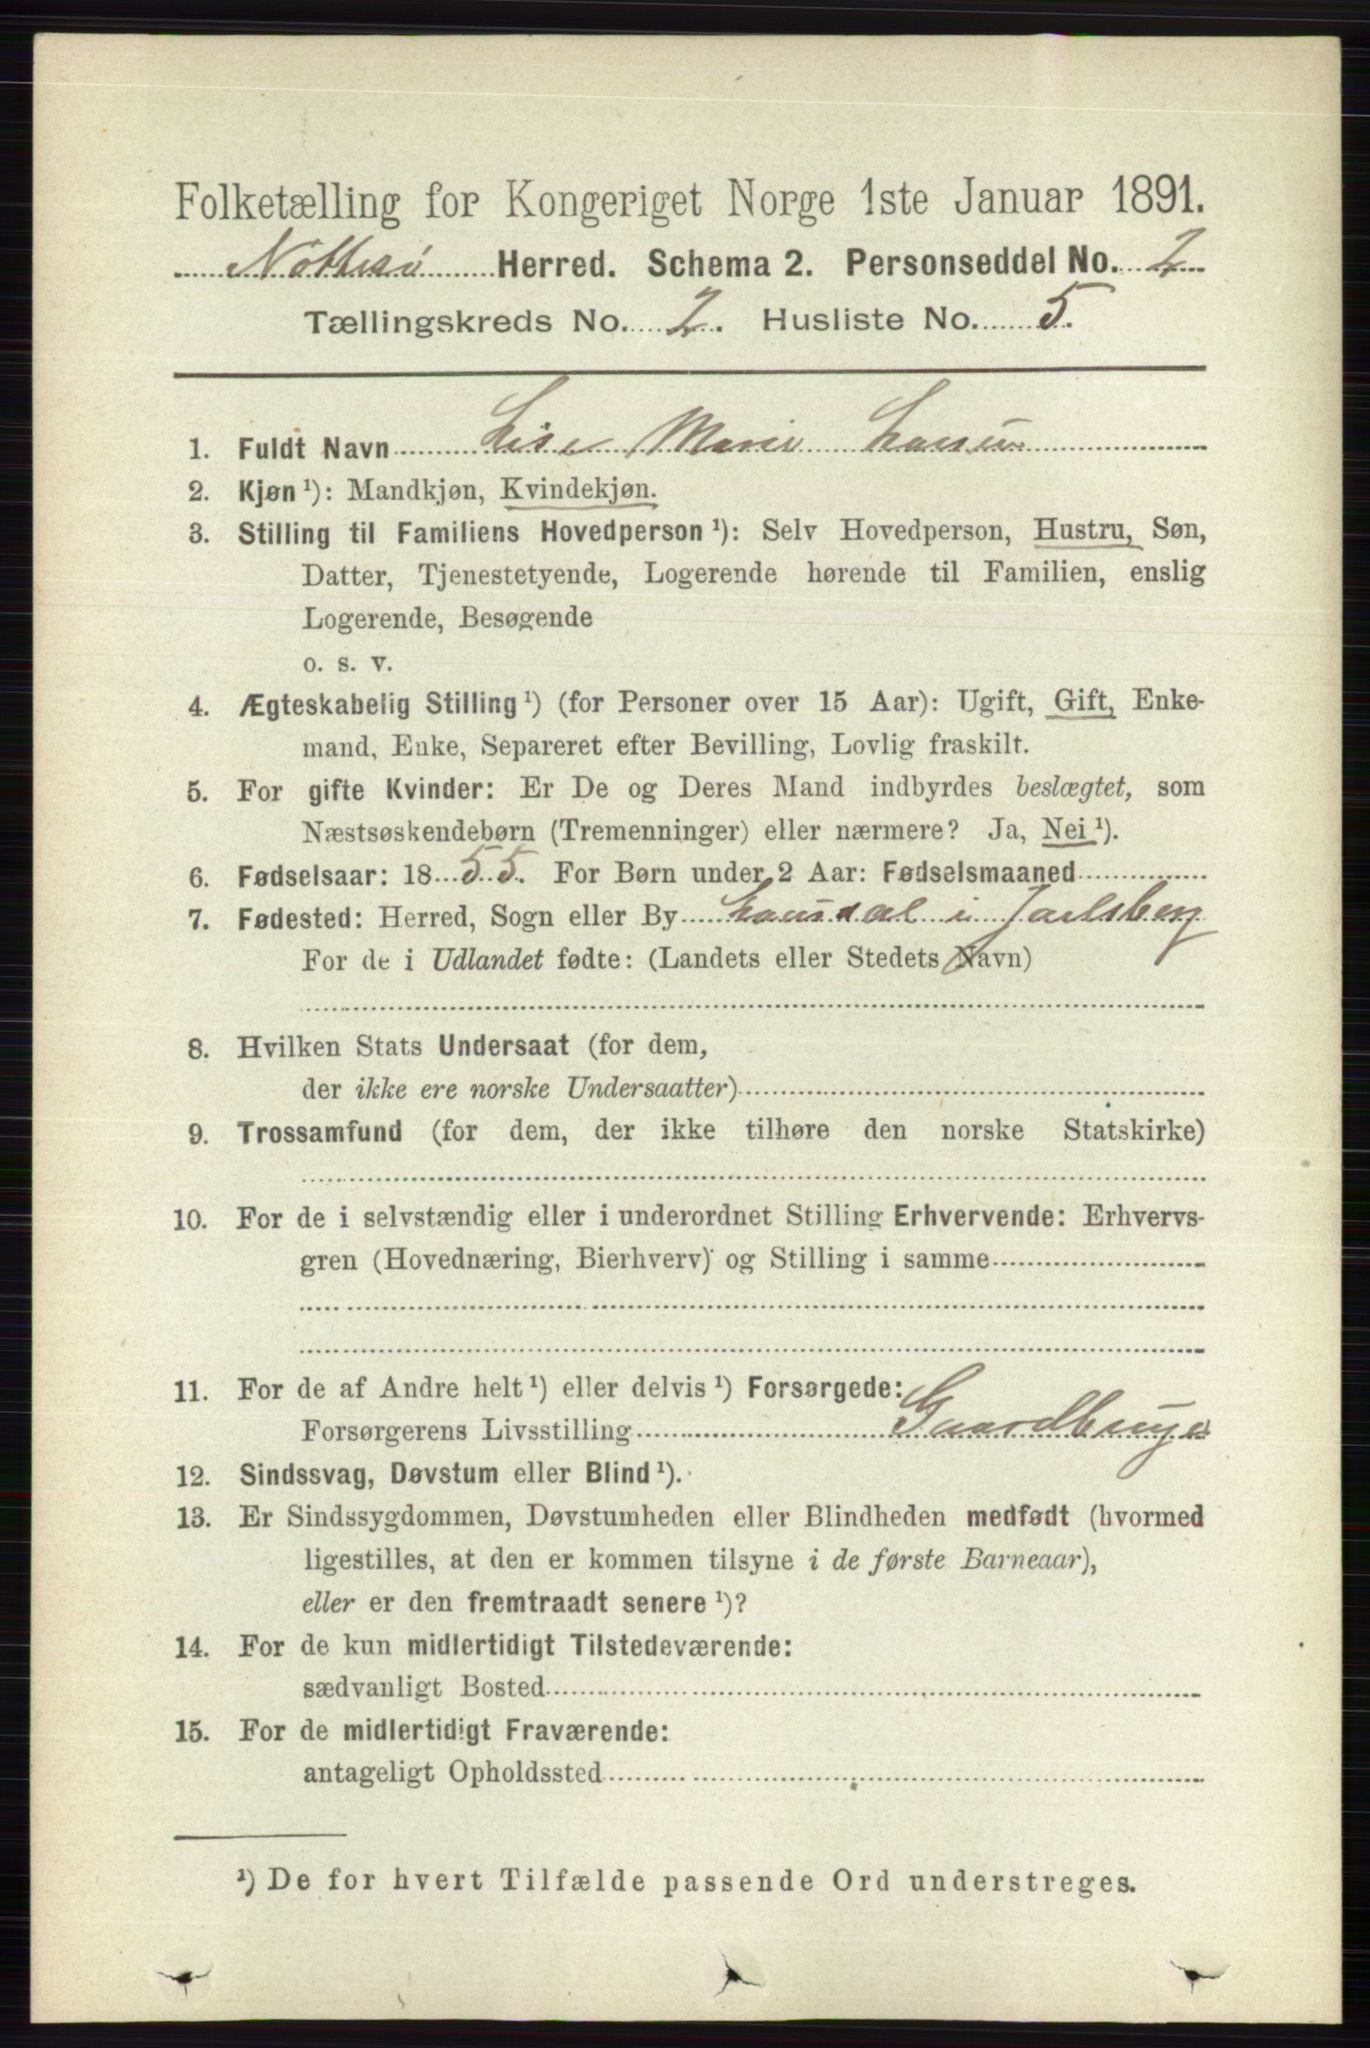 Folketælling for Kongeriget Norge 1ste Januar 1891.
Nøtterø Herred. Schema 2. Personseddel No. 2
Tællingskreds No. 2. Husliste No. 5.
1. Fuldt Navn Lise Marie Larsen
2. Kjøn ¹): Mandkjøn, Kvindekjøn.
3. Stilling til Familiens Hovedperson ¹): Selv Hovedperson, Hustru, Søn,
Datter, Tjenestetyende, Logerende hørende til Familien, enslig
Logerende, Besøgende
o. s. v.
4. Ægteskabelig Stilling ¹) (for Personer over 15 Aar): Ugift, Gift, Enke-
mand, Enke, Separeret efter Bevilling, Lovlig fraskilt.
5. For gifte Kvinder: Er De og Deres Mand indbyrdes beslægtet, som
Næstsøskendebørn (Tremenninger) eller nærmere? Ja, Nei ¹).
6. Fødselsaar: 1855. For Børn under 2 Aar: Fødselsmaaned
7. Fødested: Herred, Sogn eller By Laurdal i Jarlsberg
For de i Udlandet fødte: (Landets eller Stedets Navn)
8. Hvilken Stats Undersaat (for dem,
der ikke ere norske Undersaatter)
9. Trossamfund (for dem, der ikke tilhøre den norske Statskirke)
10. For de i selvstændig eller i underordnet Stilling Erhvervende: Erhvervs-
gren (Hovednæring, Bierhverv) og Stilling i samme
11. For de af Andre helt ¹) eller delvis ¹) Forsørgede:
Forsørgerens Livsstilling Gaardbruger
12. Sindssvag, Døvstum eller Blind ¹).
13. Er Sindssygdommen, Døvstumheden eller Blindheden medfødt (hvormed
ligestilles, at den er kommen tilsyne i de første Barneaar),
eller er den fremtraadt senere ¹)?
14. For de kun midlertidigt Tilstedeværende:
sædvanligt Bosted
15. For de midlertidigt Fraværende:
antageligt Opholdssted
¹) De for hvert Tilfælde passende Ord understreges.